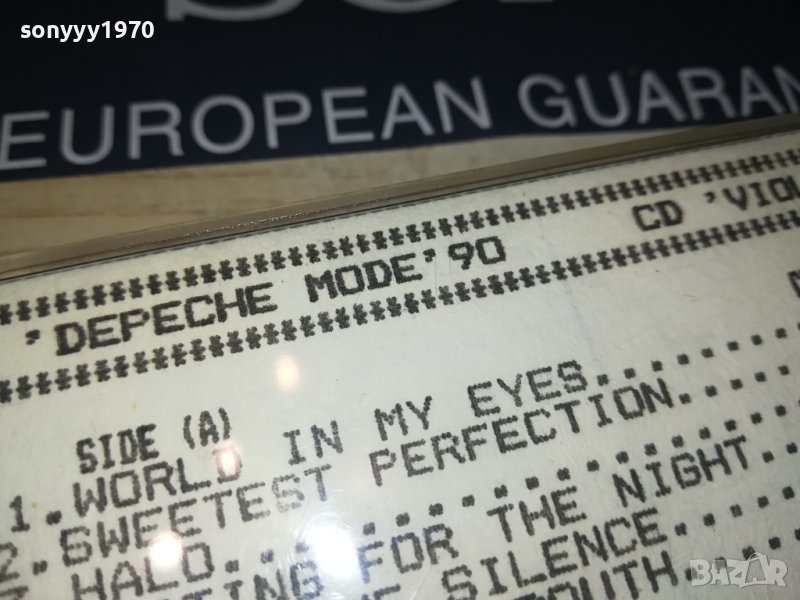 sonyyy1970
EUROPEAN GUARAN
*****************************************
'DEPECHE MODE'90 CD 'VIOL
*****************************************
SIDE (A)
1.WORLD IN MY EYES........
2.SWEETEST PERFECTION.....
HALO..............
FOR THE NIGHT..
SILENCE......
BAZAR